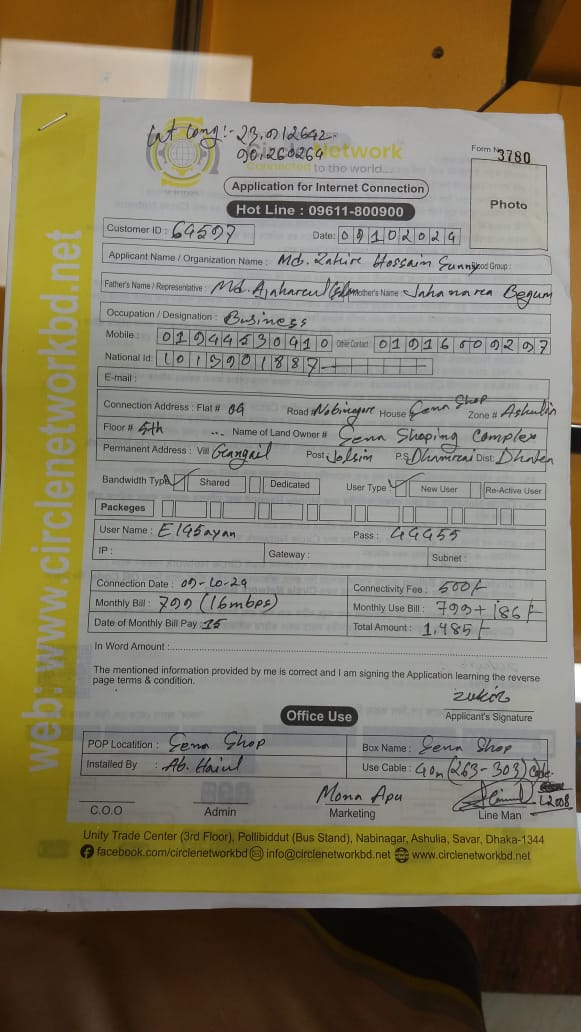 Lat Long:- 23.912642
90.260264
Circle Network
Connected to the world...
Form No 3780
Photo
Application for Internet Connection
Hot Line : 09611-800900
Customer ID : 64597
Date: 09102024
Applicant Name / Organization Name : Md. Zakire Hossain Sunny Blood Group :
Father's Name / Representative : Md. Azaharul Islam Mother's Name : Jahanara Begum
Occupation / Designation : Business
Mobile : 01944530910 Other Contact 01916009297
National Id: 1013901887
E-mail :
Connection Address : Flat # 04 Road : Nobinagore House Sena Shop Zone # Ashulia
Floor # 5th ... Name of Land Owner # Sena Shoping Complex
Permanent Address : Vill Post Jalsin P.S Dhamrai Dist: Dhaka
Bandwidth Type Shared Dedicated User Type New User Re-Active User
Packeges
User Name : Pass : 44455
IP : Gateway : Subnet :
Connection Date : 09-10-24 Connectivity Fee : 500/-
Monthly Bill : 799 (16mbps) Monthly Use Bill : 799+186/-
Date of Monthly Bill Pay : 15 Total Amount : 1,485/-
In Word Amount :
The mentioned information provided by me is correct and I am signing the Application learning the reverse
page terms & condition.
Applicant's Signature
Office Use
POP Locatition : Sena Shop Box Name : Sena Shop
Installed By : Use Cable : 40m (263-303) Cable
Mona Apu L2008
C.O.O Admin Marketing Line Man
Unity Trade Center (3rd Floor), Pollibiddut (Bus Stand), Nabinagar, Ashulia, Savar, Dhaka-1344
facebook.com/circlenetworkbd info@circlenetworkbd.net www.circlenetworkbd.net
web: www.circlenetworkbd.net